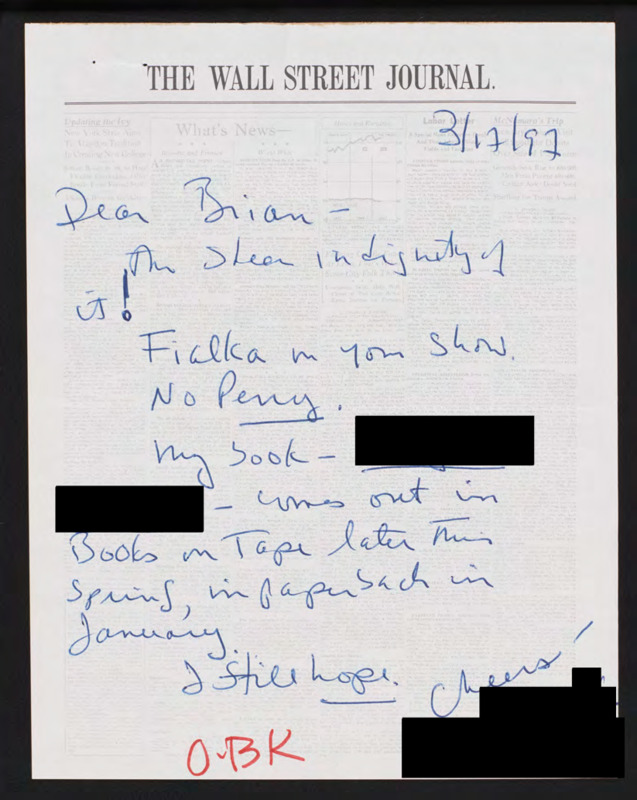 THE WALL STREET JOURNAL.
What's News—
3/17/97
Dear Brian –
The sheer indignity of
it!
Fialka on your show.
No Perry.
My book –
– comes out in
Books on Tape later this
spring, in paperback in
January.
I still hope. Cheers!
O-BK